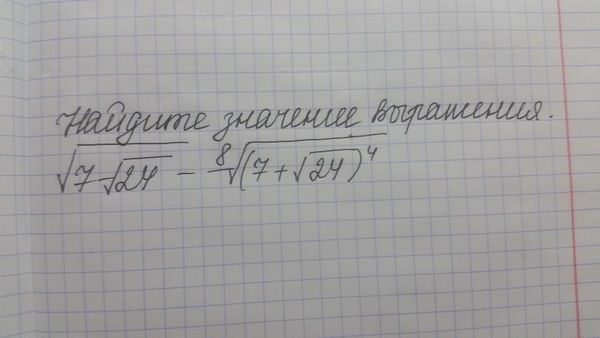 Найдите значение выражения.
√(7-√24) - ⁸√((7+√24)⁴)